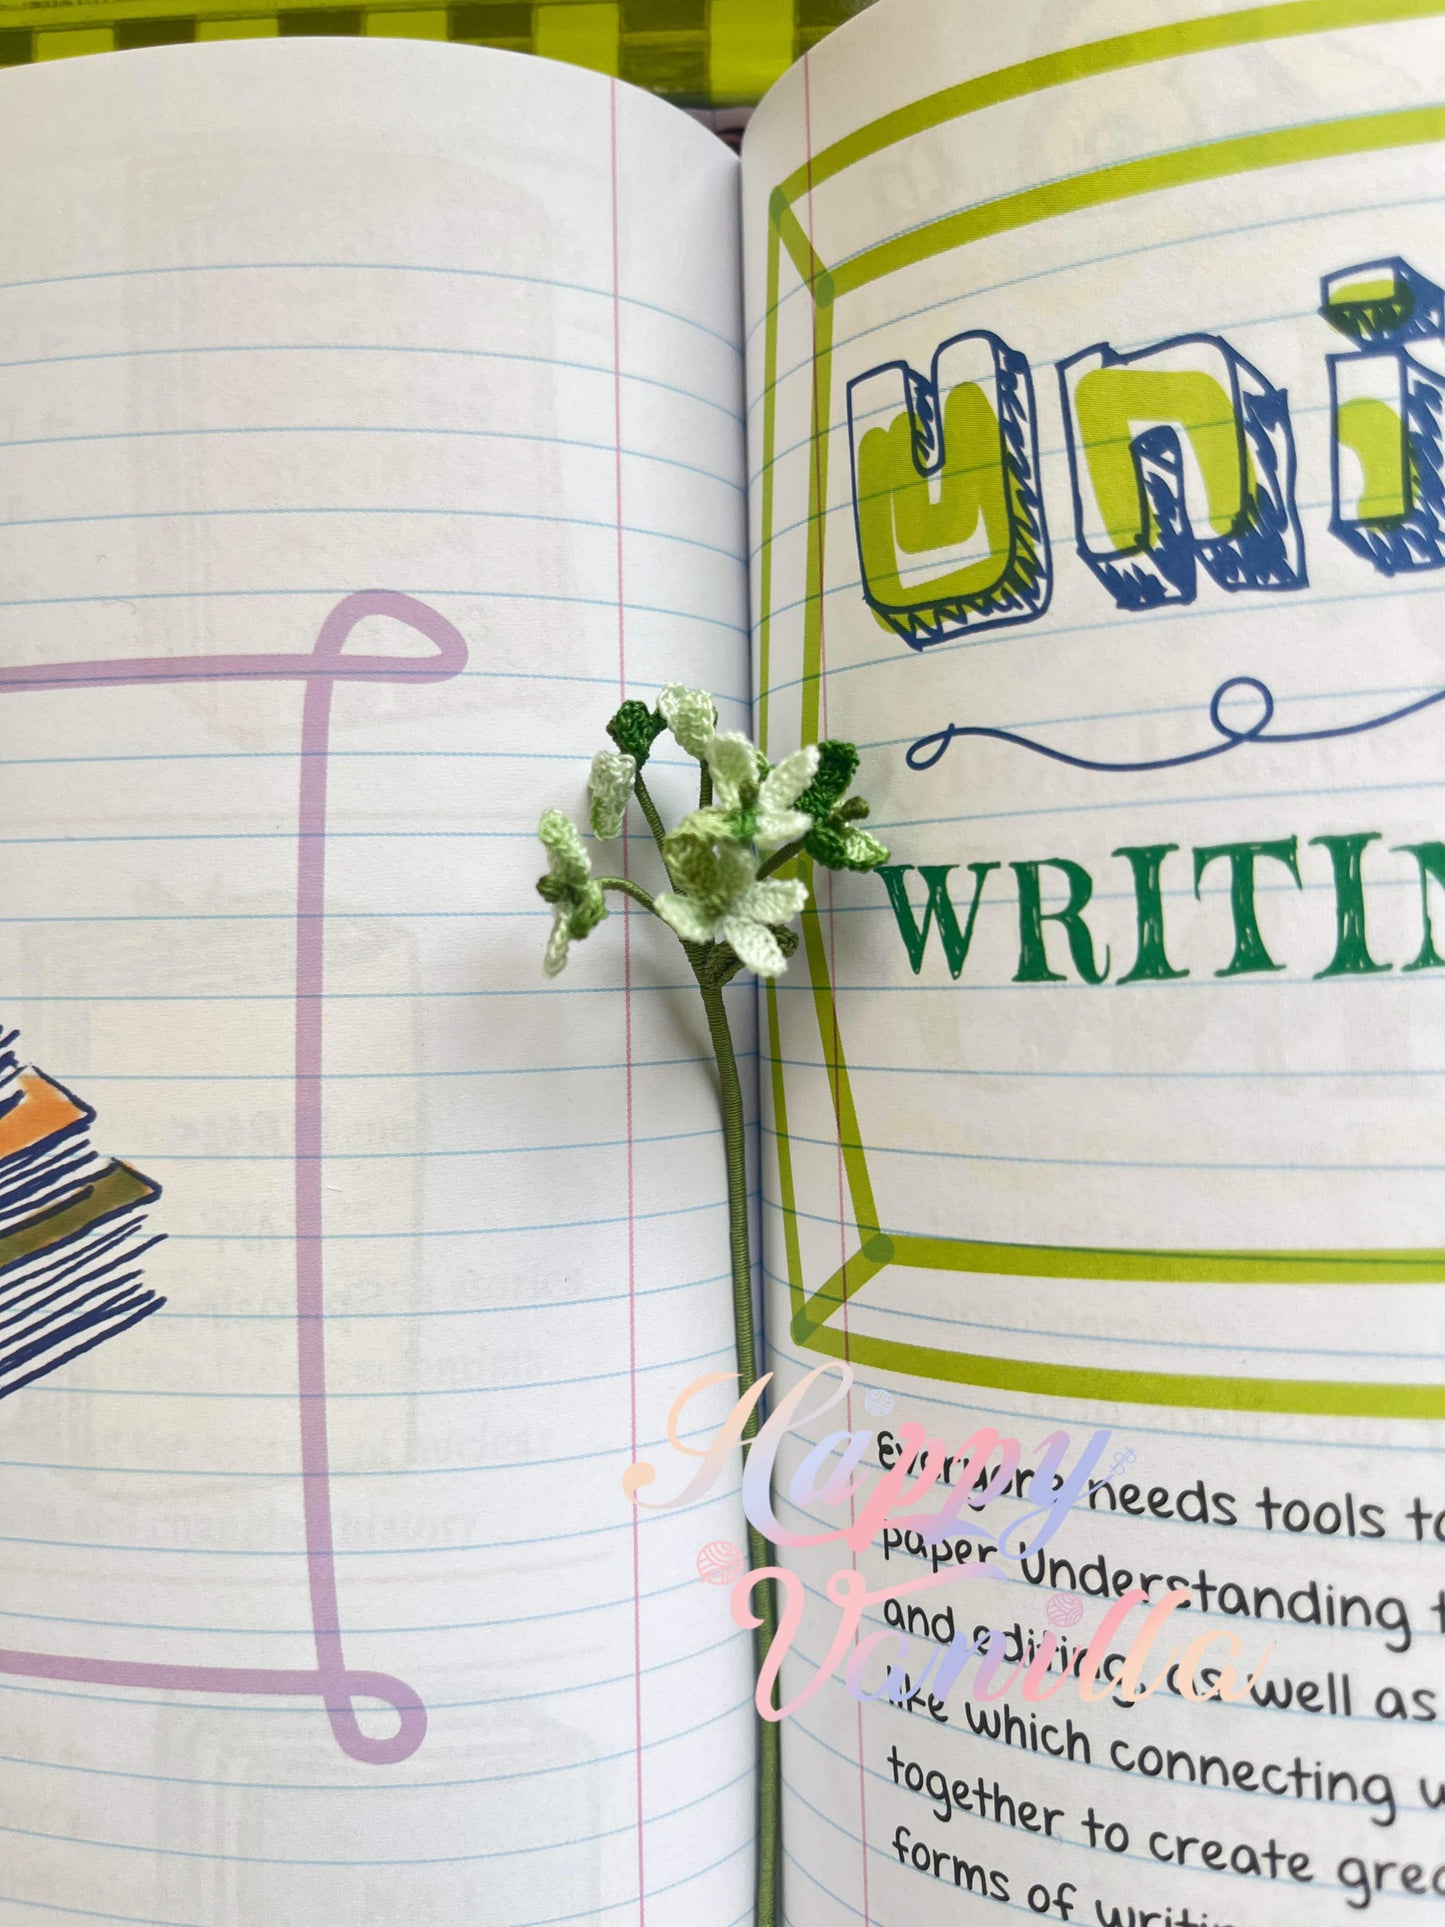 uni
WRITIN
Everyone needs tools to
paper. Understanding t
and editing, as well as
like which connecting w
together to create grea
forms of writin
Happy
Vanilla